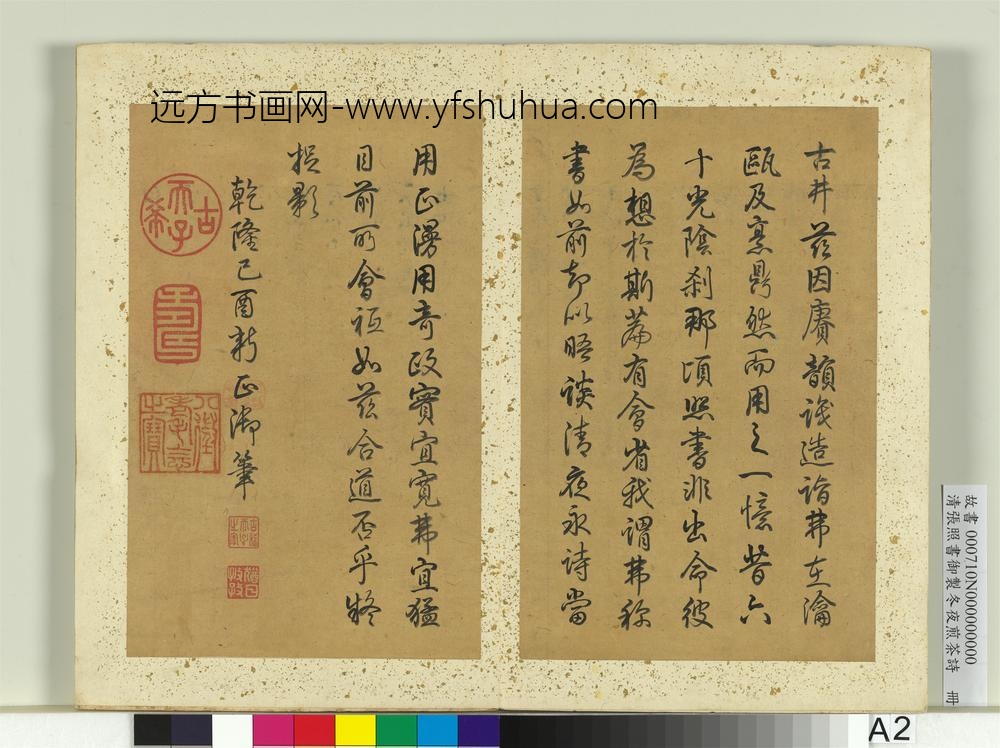 远方书画网-www.yfshuhua.com
古井茲因賡韻識造詣弗在瀹
甌及烹鼎然而用之一憶昔六
十光陰剎那頃照書非出命彼
為想於斯薦有會省我謂弗稱
書如前却以晤談清夜永詩當
用正湯用奇政實宜寬弗宜猛
目前所會祗如茲合道否乎終
捉影
乾隆己酉新正御筆
古希天子
壽
八徵耄念之寶
故書 000710N000000000
清張照書御製冬夜煎茶詩 冊
A2